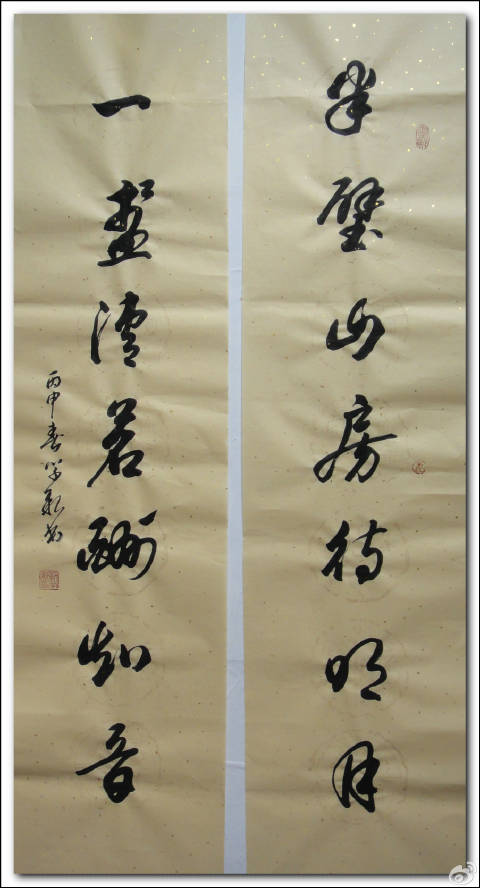 半璧山房待明月
一盏清茗酬知音
丙申春